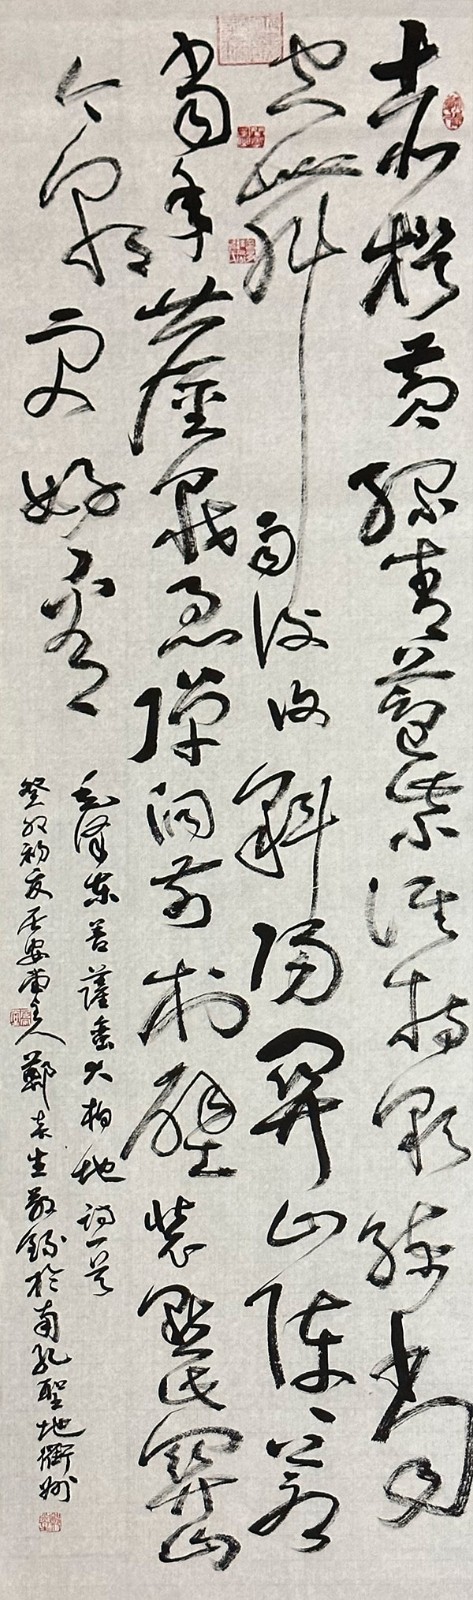 赤橙黃綠青藍紫誰持彩練當
空舞雨後復斜陽關山陣々蒼
當年鏖戰急彈洞前村壁裝點此關山
今朝更好看
毛澤東菩薩蠻大柏地詞一首
癸卯初夏居安堂主人鄭生敬錄於南孔聖地衢州